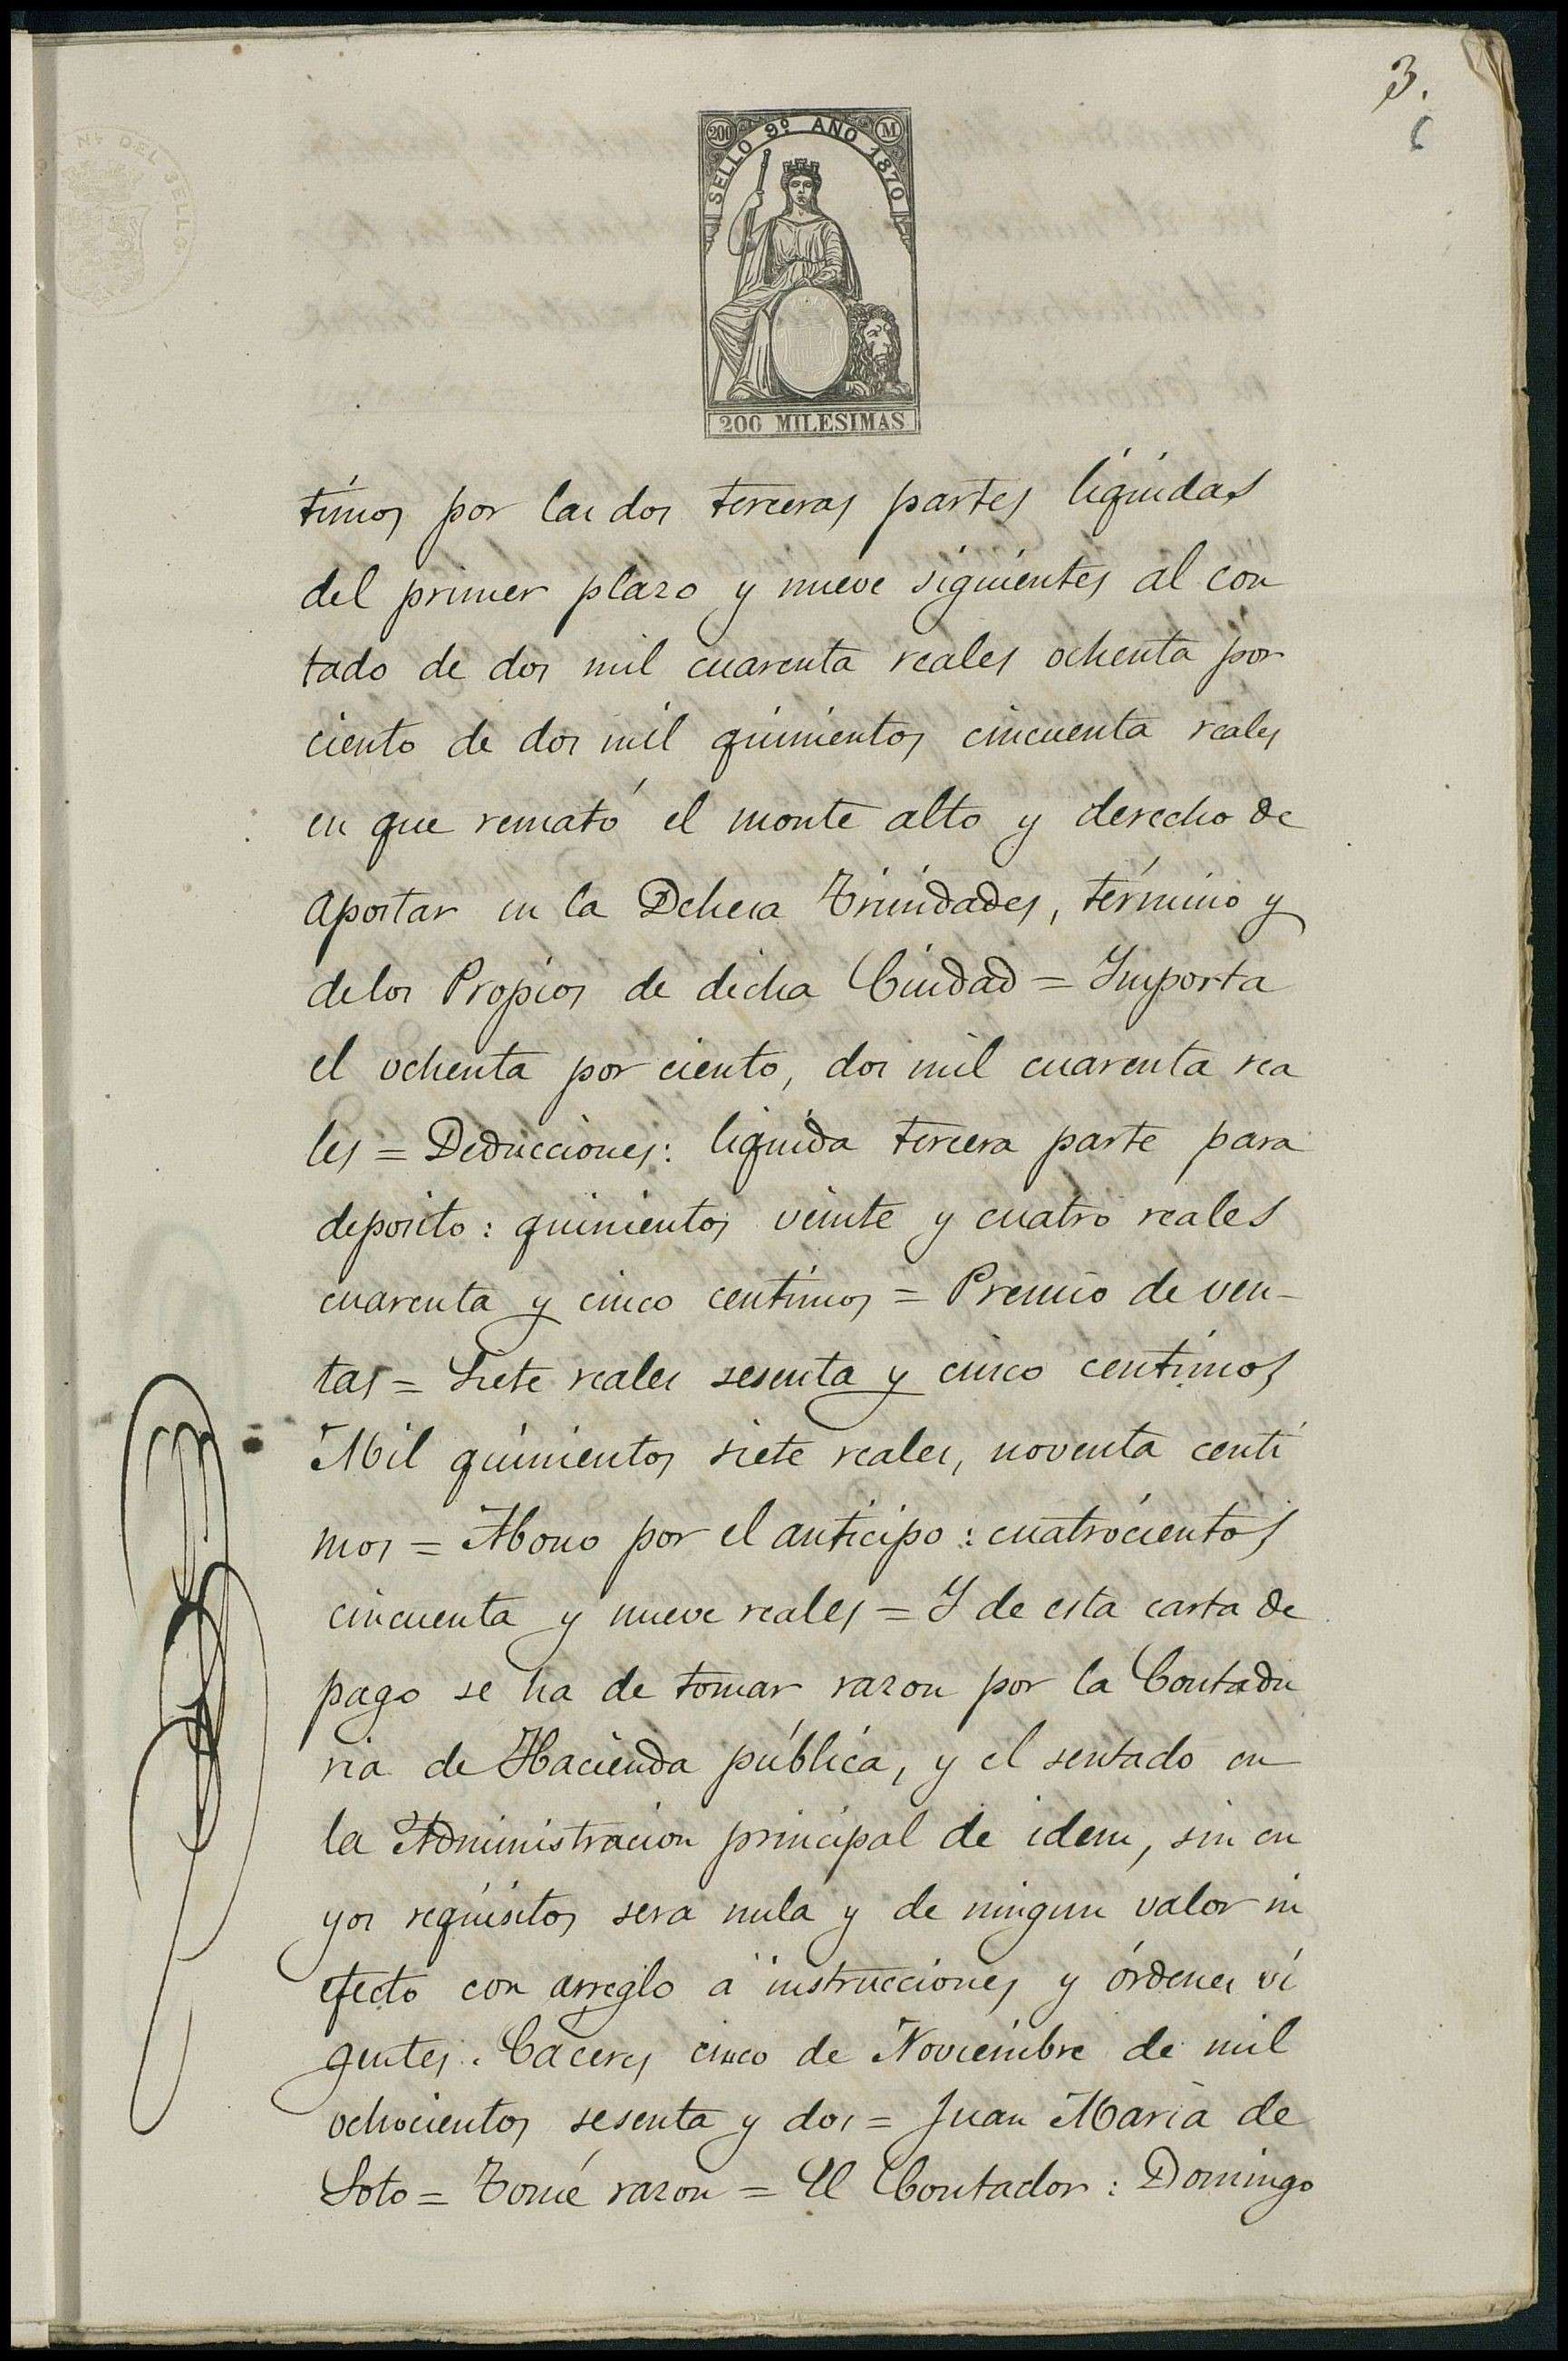 3.
Nº DEL SELLO
200 SELLO 9º AÑO 1870 M
200 MILESIMAS
timos por las dos terceras partes líquidas
del primer plazo y nueve siguientes al con
tado de dos mil cuarenta reales ochenta por
ciento de dos mil quinientos cincuenta reales
en que remató el monte alto y derecho de
apostar en la Dehesa Trinidades, término y
de los Propios de dicha Ciudad = Importa
el ochenta por ciento, dos mil cuarenta rea
les = Deducciones: líquida tercera parte para
deposito: quinientos veinte y cuatro reales
cuarenta y cinco centimos = Premio de ven-
tas = Siete reales sesenta y cinco centimos
Mil quinientos siete reales, noventa centi
mos = Abono por el anticipo: cuatrocientos
cincuenta y nueve reales = Y de esta carta de
pago se ha de tomar razon por la Contadu
ria de Hacienda pública, y el sentado en
la Administracion principal de idem, sin cu
yos requisitos sera nula y de ningun valor ni
efecto con arreglo á instrucciones y órdenes vi
gentes. Caceres cinco de Noviembre de mil
ochocientos sesenta y dos = Juan Maria de
Soto = Tomé razon = El Contador: Domingo